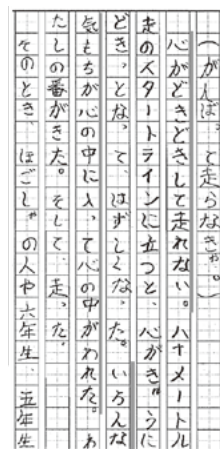 （がんばって走らなきゃ。）
心がどきどきして走れない。八十メートル
走のスタートラインに立つと、心がきゅうに
どきっとなって、はずしくなった。いろんな
気もちが心の中に入って心の中がわれた。わ
たしの番がきた。そして、走った。
そのとき、ほごしゃの人や六年生、五年生